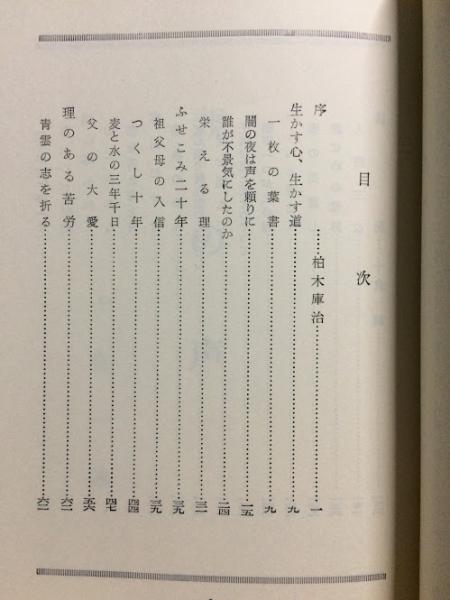 目次
序……柏木庫治……一
生かす心、生かす道……九
一枚の葉書……九
闇の夜は声を頼りに……一五
誰が不景気にしたのか……二四
栄える理……三一
ふせこみ二十年……三九
祖父母の入信……三九
つくし十年……四四
麦と水の三年千日……四七
父の大愛……五六
理のある苦労……六二
青雲の志を折る……六二